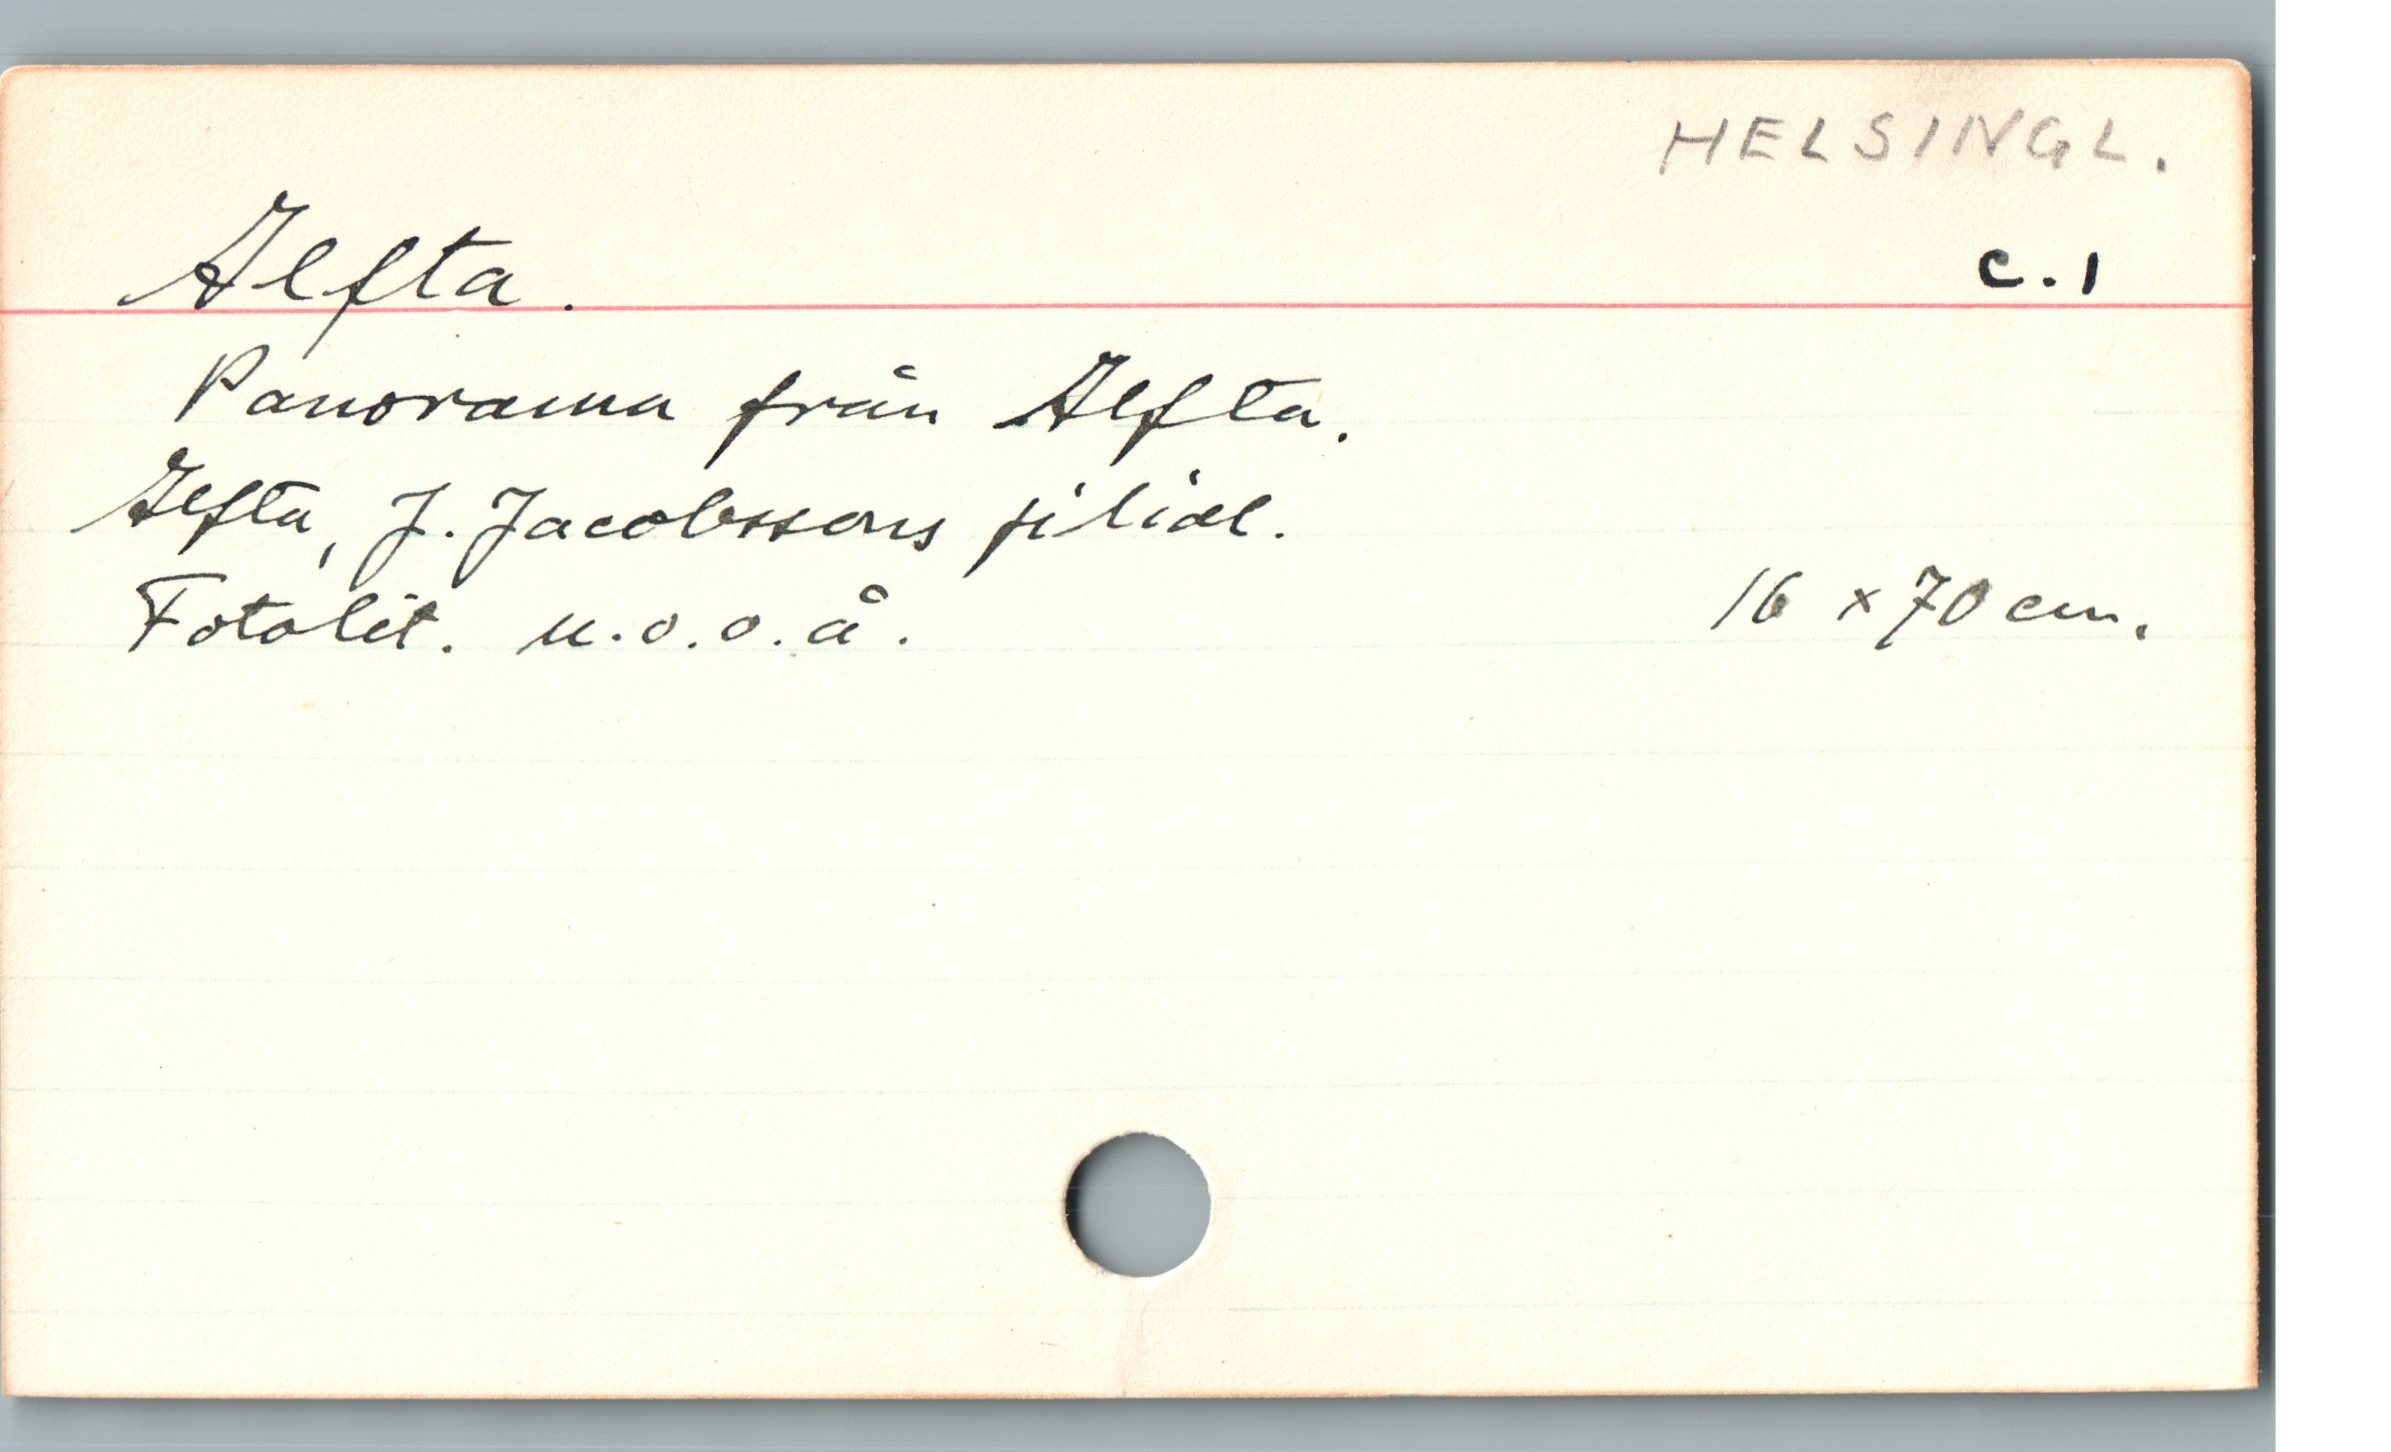 HELSINGL.
Alfta.
c.1
Panorama från Alfta.
Alfta, J. Jacobssons filial.
Fotolit. u.o.o.å.
16 x 70 cm.